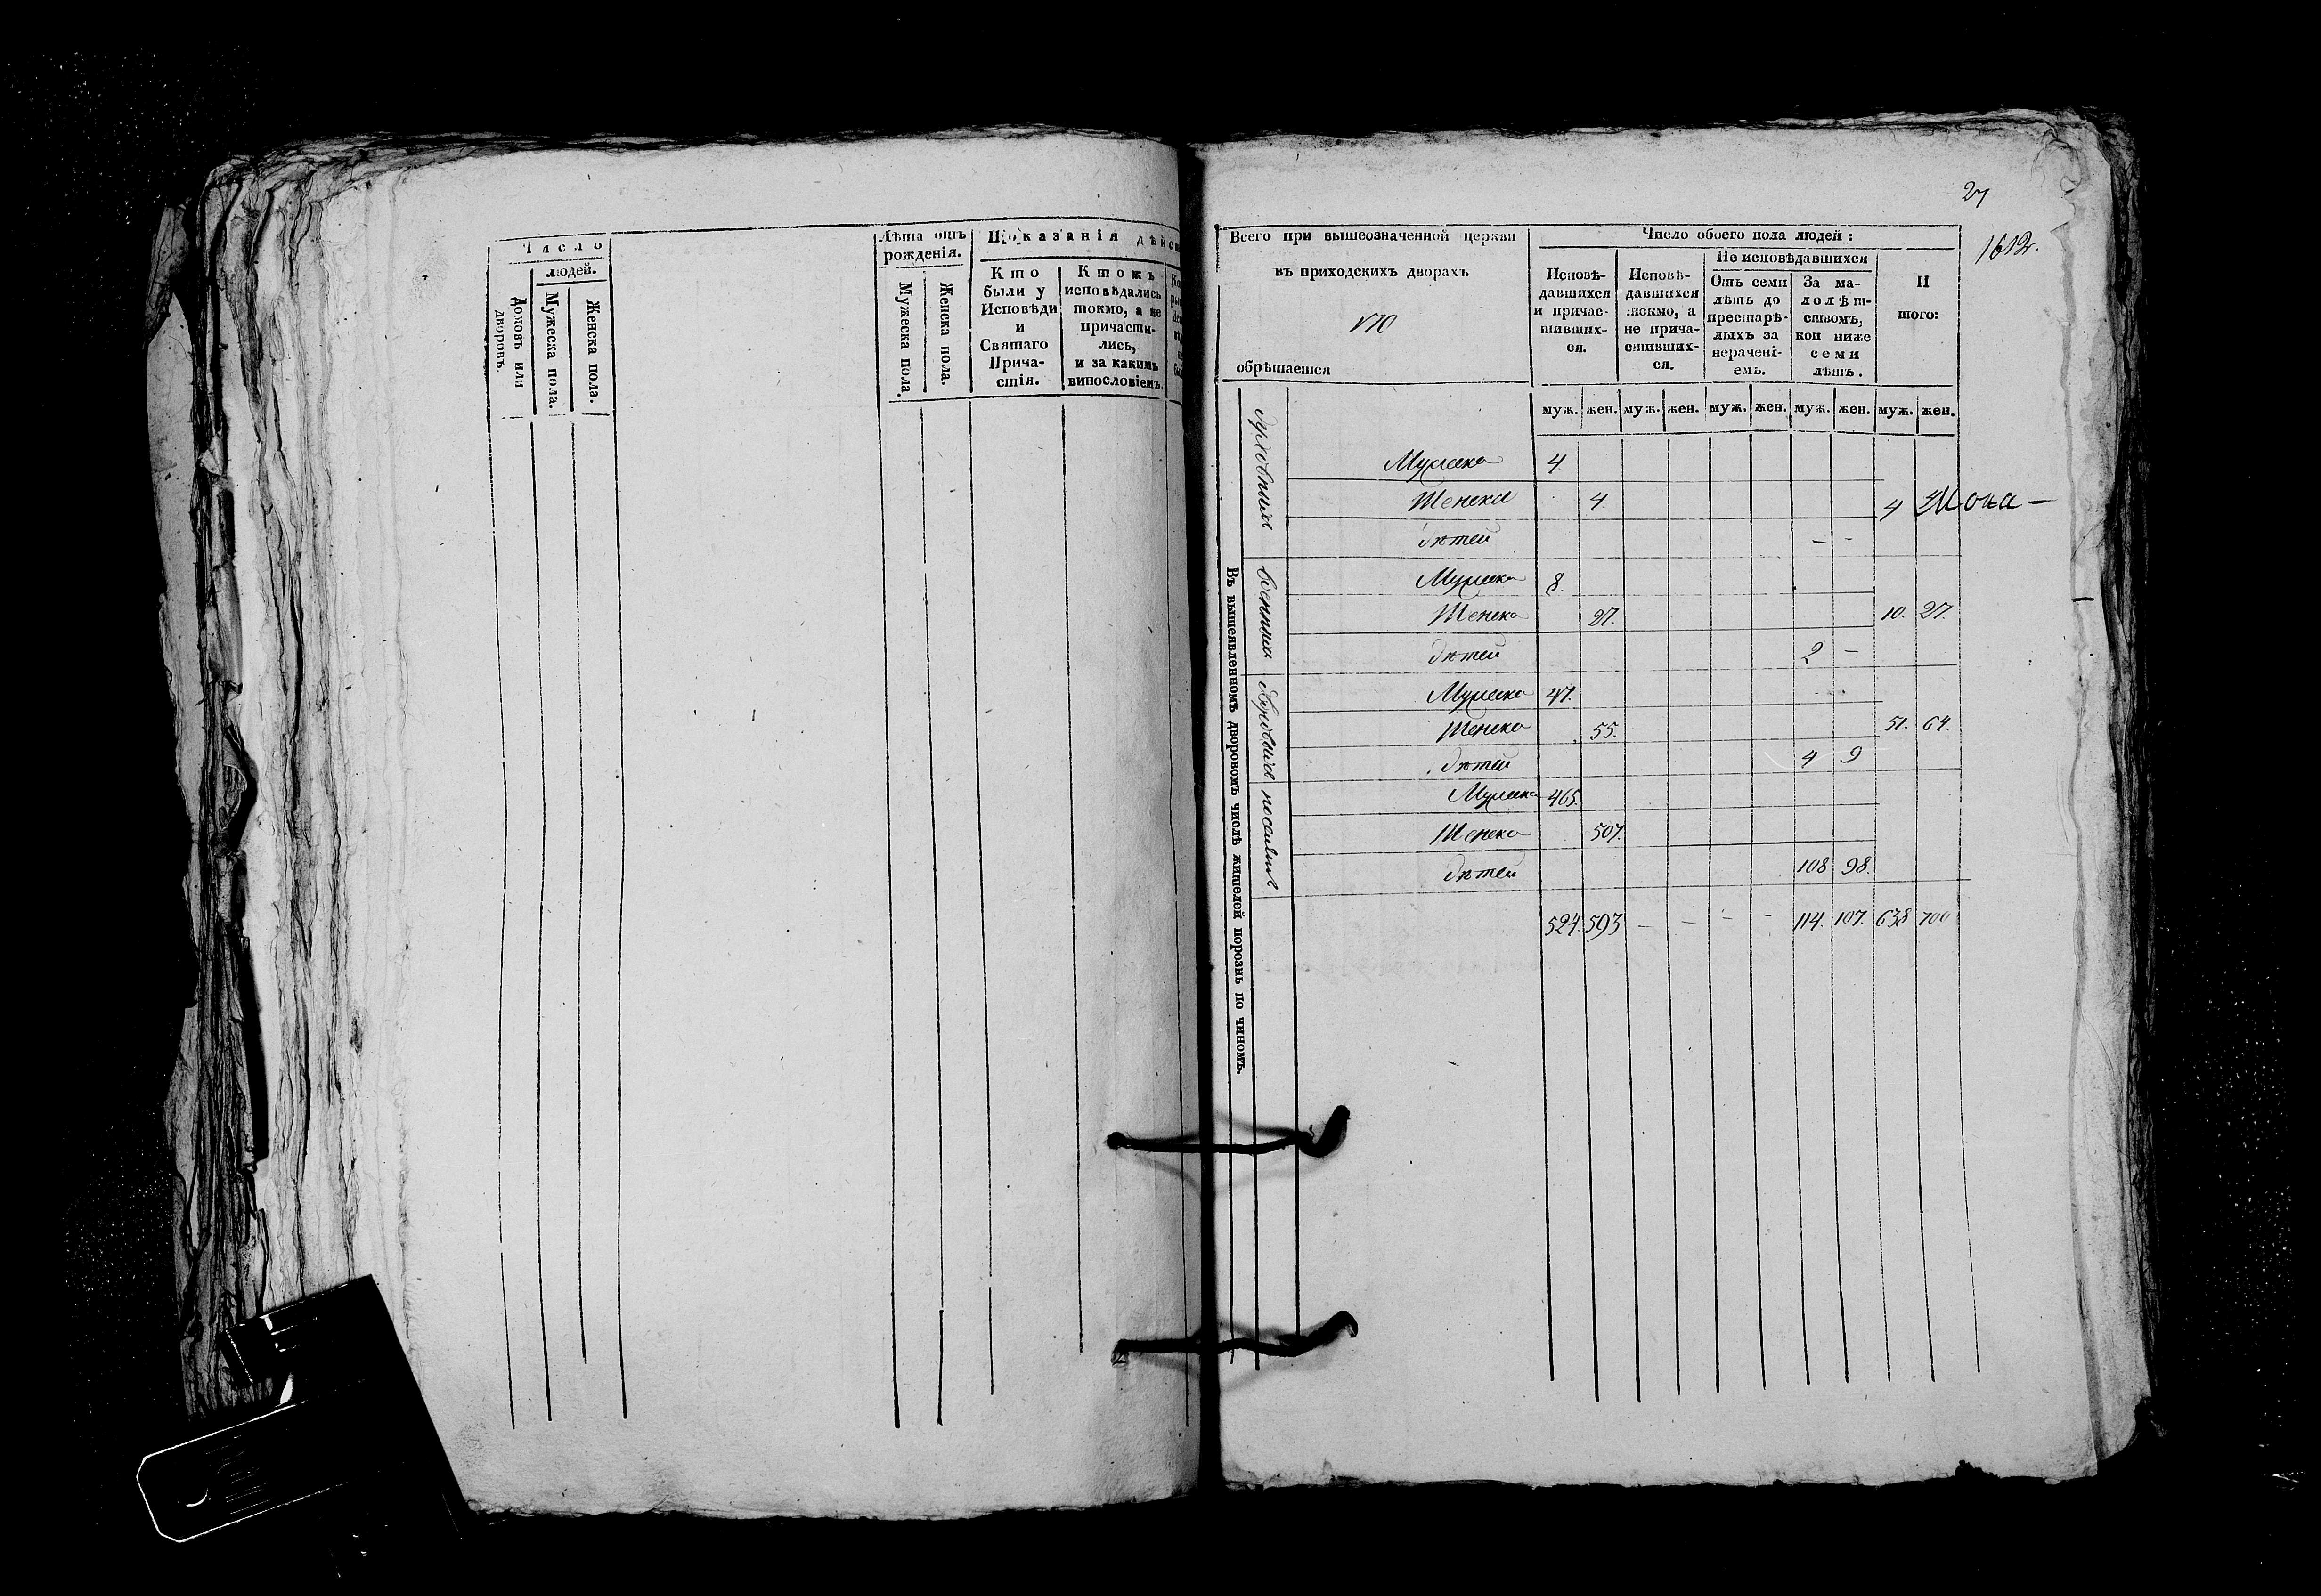 Число
людей.
Домовъ или
дворовъ.
Мужеска пола.
Женска пола.
Лѣта отъ
рожденія.
Мужеска пола.
Женска пола.
Показанія дѣйс
Кто
были у
Исповѣди
и
Святаго
Прича-
стія.
Ктожъ
исповѣдались
токмо, а не
причасти-
лись,
и за какимъ
винословіемъ.
27
1612.
Всего при вышеозначенной церкви
въ приходскихъ дворахъ
170
обрѣтается
Число обоего пола людей:
Исповѣ-
давшихся
и причас-
тивших-
ся.
Исповѣ-
давшихся
токмо, а
не прича-
стивших-
ся.
Не исповѣдавшихся
Отъ семи
лѣтъ до
престарѣ-
лыхъ за
нерачені-
емъ.
За ма-
лолѣт-
ствомъ,
кои ниже
семи
лѣтъ.
И
того:
муж. жен. муж. жен. муж. жен. муж. жен. муж. жен.
Въ вышеявленномъ дворовомъ числѣ жителей порознь по чиномъ.
духовныхъ
Мужска 4
Женска 4. 4
дѣтей – –
военныхъ
Мужска 8.
Женска 27. 10. 27.
дѣтей 2 –
Мужска 47.
Женска 55. 51. 64.
дѣтей 4 9
Мужска 465.
Женска 507.
дѣтей 108 98.
524. 593 – – – – 114. 107. 638 700